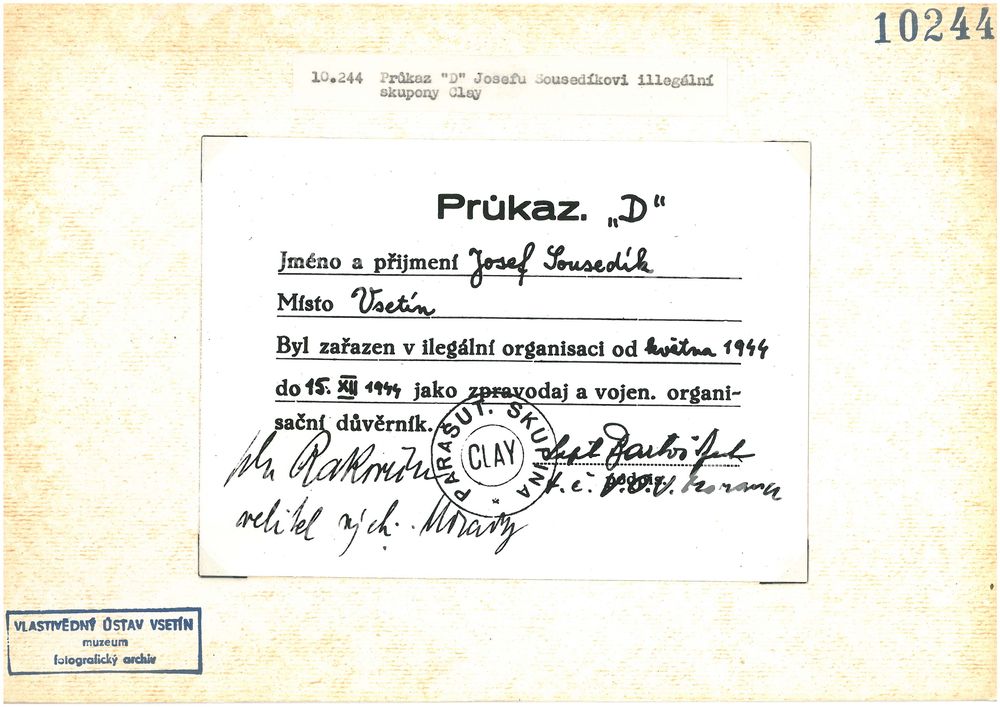 10244
10.244 Průkaz "D" Josefu Sousedíkovi illegální
skupony Clay
Průkaz. „D“
Jméno a přijmení Josef Sousedík
Místo Vsetín
Byl zařazen v ilegální organisaci od května 1944
do 15. XII 1944 jako zpravodaj a vojen. organi-
sační důvěrník.
PARAŠUT. SKUPINA
CLAY
podpis.
velitel vých. Moravy
VLASTIVĚDNÝ ÚSTAV VSETÍN
muzeum
fotografický archiv